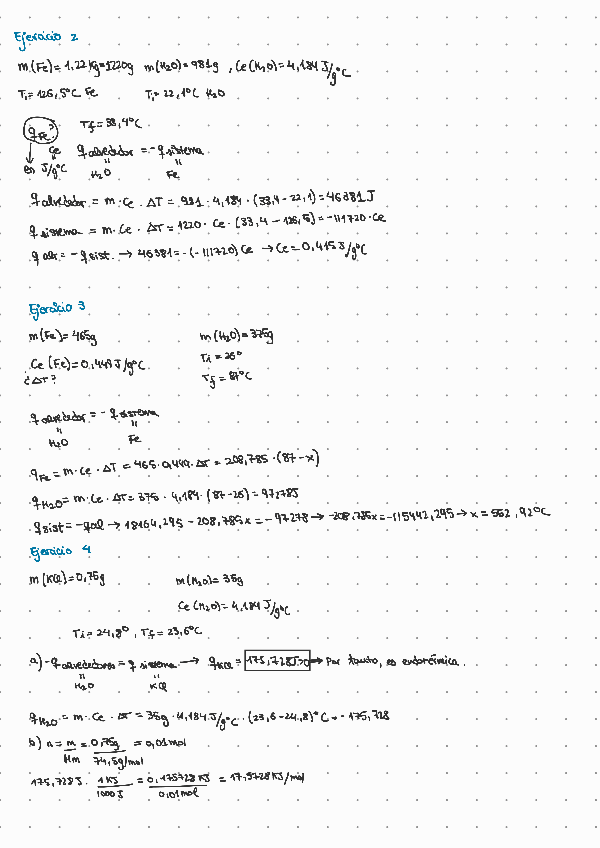 Ejercicio 2
m(Fe)=1,22Kg=1220g m(H₂O)=981g , Ce(H₂O)=4,184 J/g°C
Ti=126,5°C Fe Ti=22,1°C H₂O
q Fe? Tf=33,4°C
Ce q alrededor = -q sistema
en J/g°C H₂O Fe
q alrededor = m·Ce·ΔT = 981·4,184·(33,4-22,1)=46381J
q sistema = m·Ce·ΔT = 1220·Ce·(33,4-126,5)=-111720·Ce
q alr = -q sist. → 46381=-(-111720)Ce → Ce=0,415J/g°C
Ejercicio 3
m(Fe)=465g m(H₂O)=375g
Ce(Fe)=0,449J/g°C Ti=26°
¿ΔT? Tf=87°C
q alrededor = -q sistema
H₂O Fe
qFe=m·Ce·ΔT = 465·0,449·ΔT = 208,785·(87-x)
qH₂O=m·Ce·ΔT=375·4,184·(87-26)=97278J
qsist=-qal → 18164,295-208,785x=-97278 → -208,785x=-115442,295 → x=552,92°C
Ejercicio 4
m(KCl)=0,75g m(H₂O)=35g
Ce(H₂O)=4,184J/g°C
Ti=24,8°, Tf=23,6°C
a)-q alrededores=q sistema → qKCl=175,728J>0 → Por tanto, es endotérmica.
H₂O KCl
qH₂O=m·Ce·ΔT=35g·4,184J/g°C·(23,6-24,8)°C=-175,728
b) n=m/Mm=0,75g/74,5g/mol=0,01mol
175,728J·1KJ/1000J=0,175728KJ/0,01mol=17,5728KJ/mol